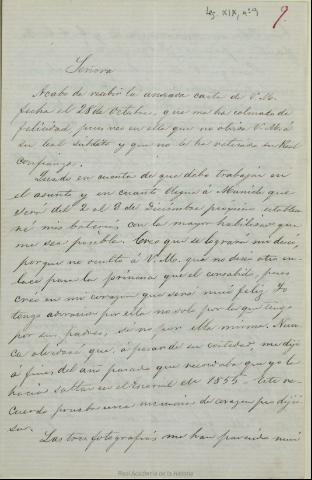 Leg. XIX, nº 9
9.
Señora
Acabo de recibir la ansiada carta de V. M.
fecha el 28 de Octubre, que me ha colmado de
felicidad pues veo en ella que no olvida V. M. á
su leal subdito y que no le ha retirado su Real
confianza.
Quedo en cuenta de que debo trabajar en
el asunto y en cuanto llegue á Munich que
será del 2 al 8 de Diciembre proximo establece
ré mis baterias con la mayor habilidad que
me sea posible. Creo que se lograra mi deseo,
porque no oculto á V. M. que no deseo otro en
lace para la princesa que el consabido, pues
creo en mi corazon que será muy feliz. Yo
tengo adoracion por ella no solo por lo que tengo
por sus padres, si no por ella misma. Nun
ca olvidaré que, á pesar de su cortedad, me dijo
á fines del año pasado que recordaba que yo la
hacia saltar en el de 1855. Este re
cuerdo prueba una memoria de corazon prodijio
sa.
Las tres fotografias me han parecido mui
Real Academia de la Historia